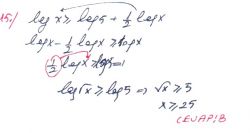 15/ log x ≥ log 5 + ½ log x
log x - ½ log x ≥ log x
½ log x ≥ = 1
log √x ≥ log 5 ⇒ √x ≥ 5
x ≥ 25
CEVAP: B